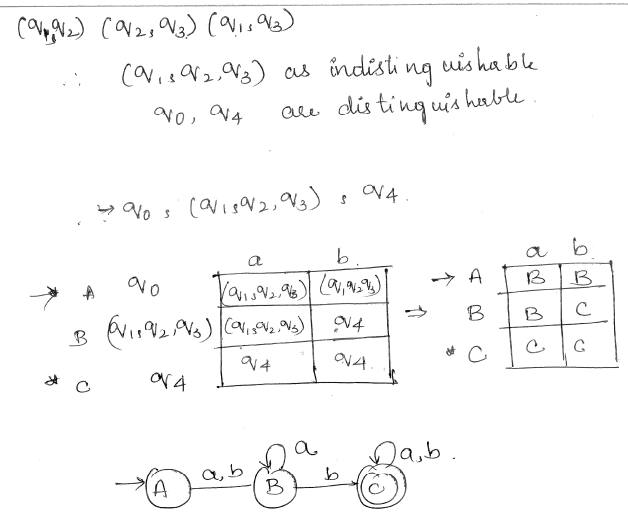 (q1,q2) (q2,q3) (q1,q3)
∴ (q1,q2,q3) as indistinguishable
q0, q4 are distinguishable.
→ q0, (q1,q2,q3), q4.
a b
→ A q0 (q1,q2,q3) (q1,q2,q3)
B (q1,q2,q3) (q1,q2,q3) q4
* C q4 q4 q4
⇒
a b
→ A B B
B B C
* C C C
→ A a,b B a b C a,b.